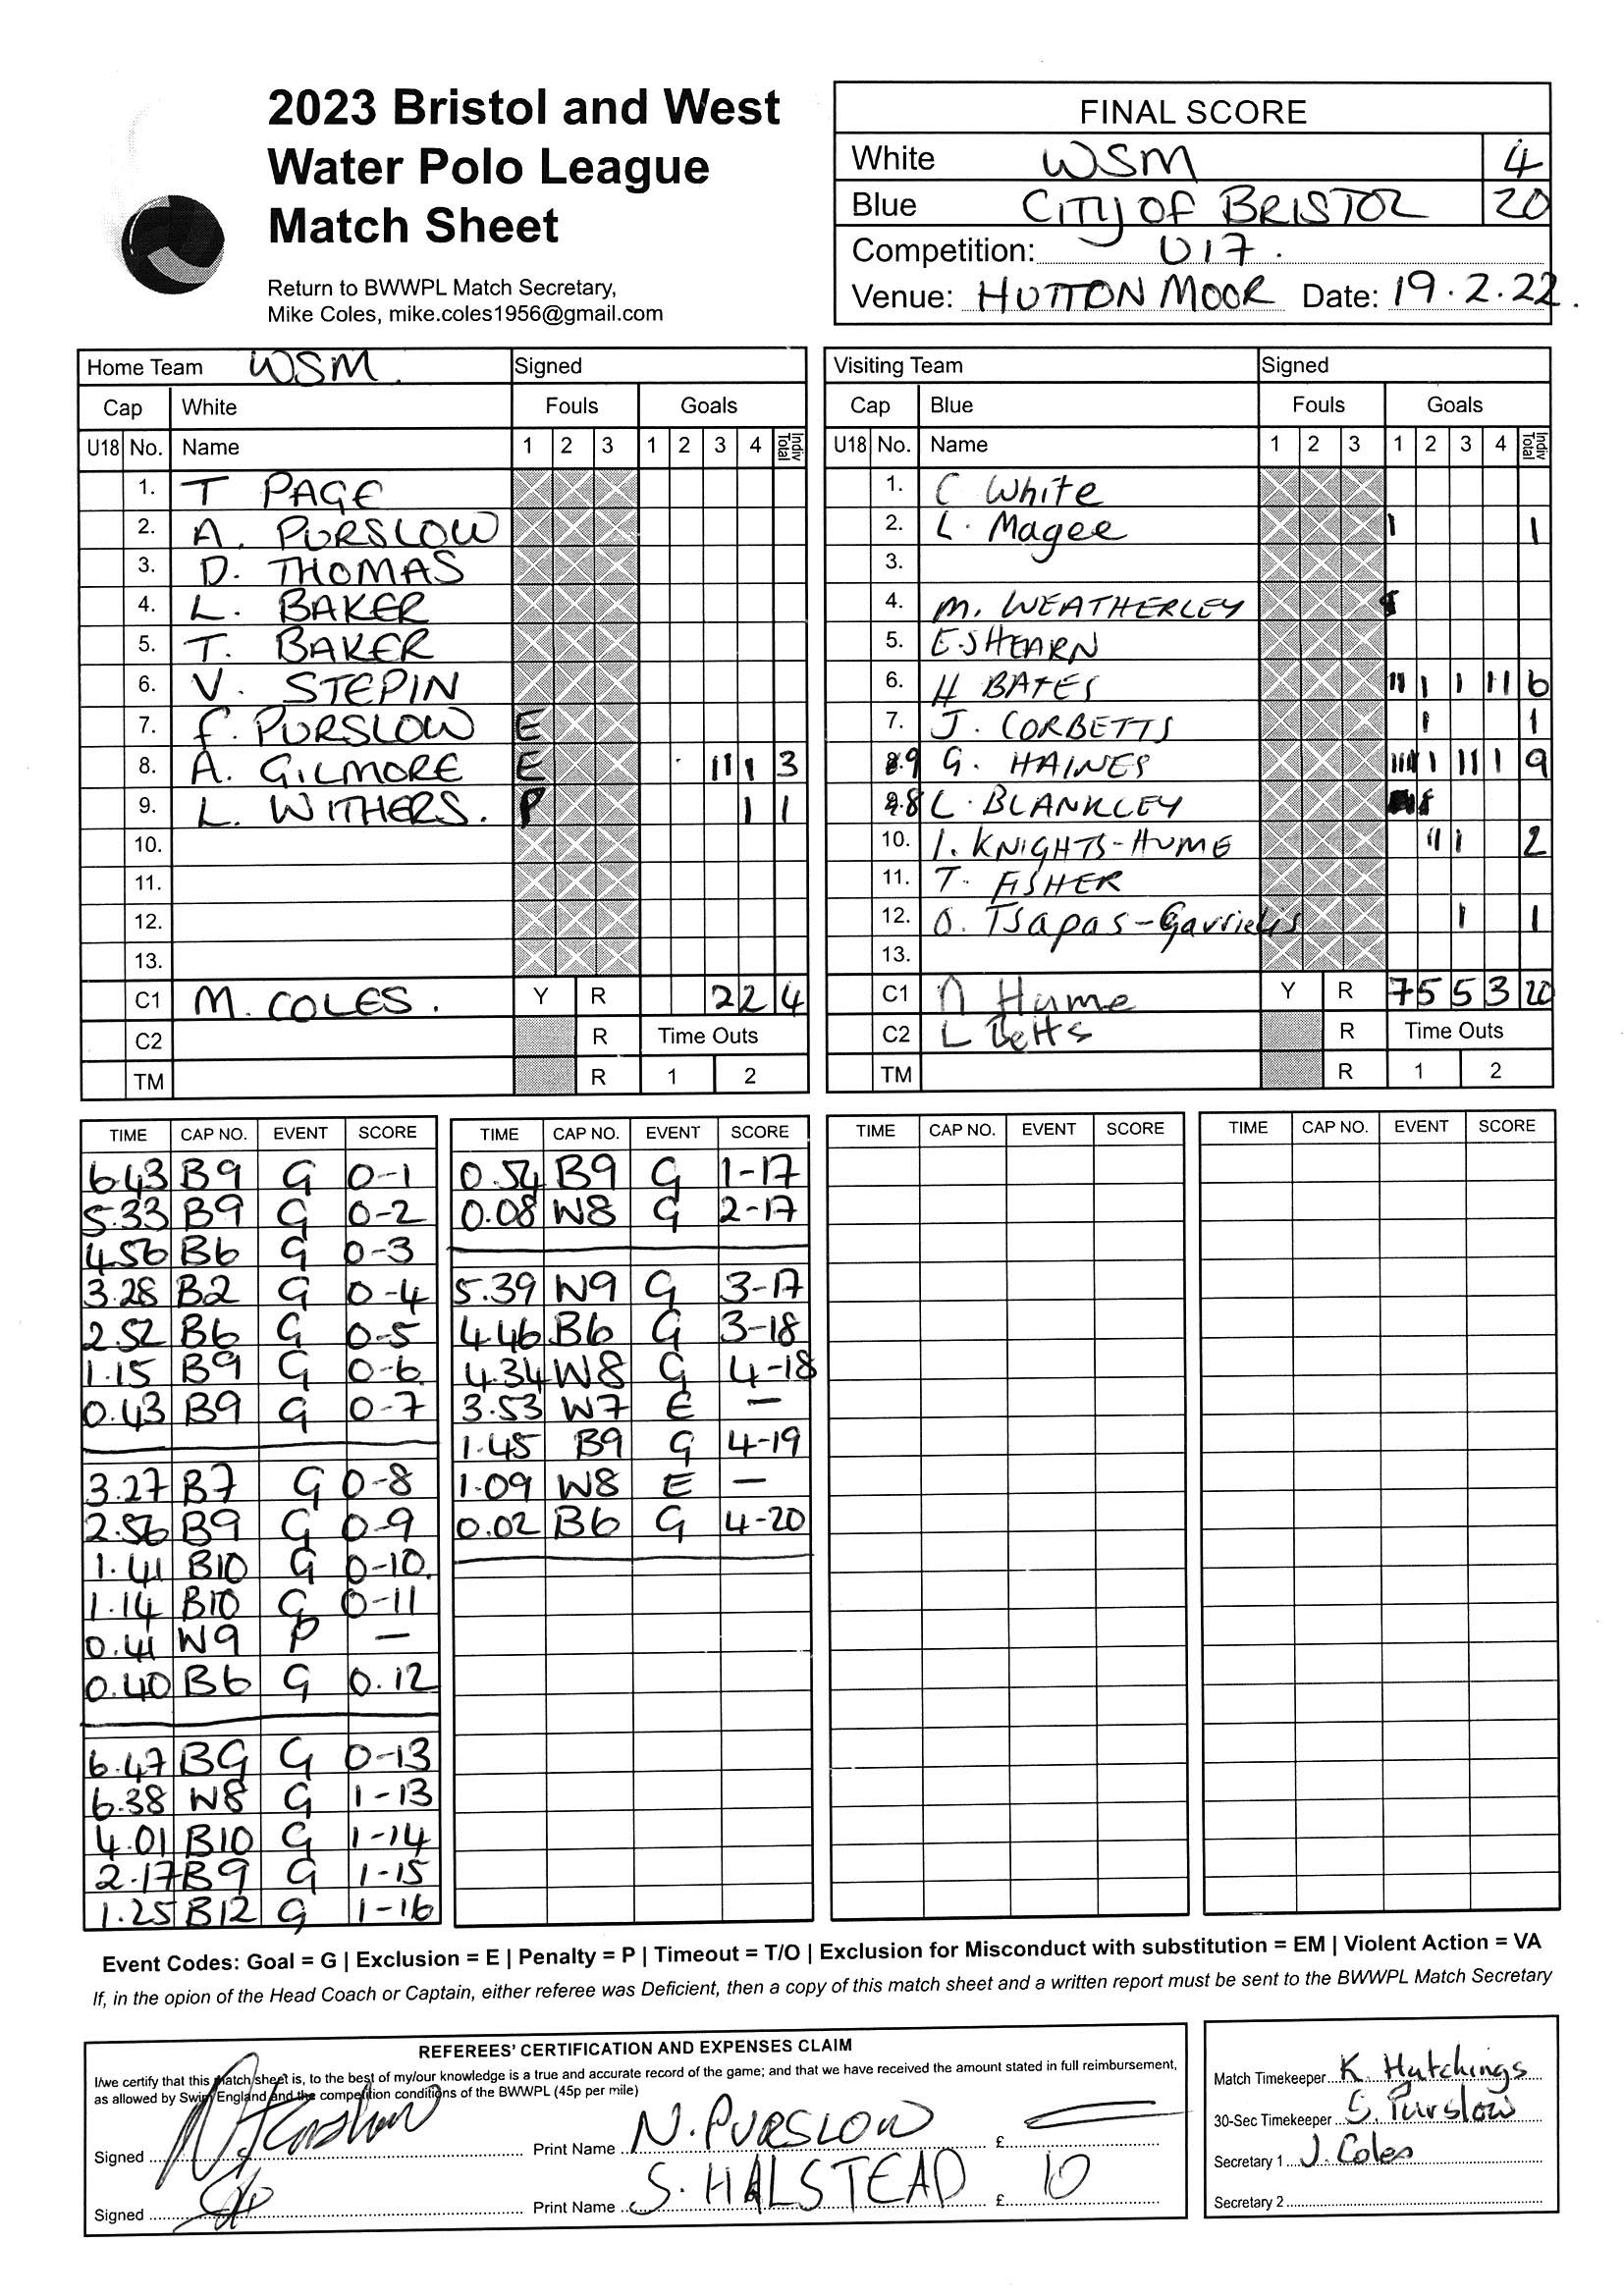 2023 Bristol and West
Water Polo League
Match Sheet
Return to BWWPL Match Secretary,
Mike Coles, mike.coles1956@gmail.com
FINAL SCORE
White WSM 4
Blue CITY OF BRISTOL 20
Competition: U17.
Venue: HUTTON MOOR Date: 19.2.22.
Home Team WSM. Signed
Cap White Fouls Goals
U18 No. Name 1 2 3 1 2 3 4 Indiv Total
1. T PAGE
2. A. PURSLOW
3. D. THOMAS
4. L. BAKER
5. T. BAKER
6. V. STEPIN
7. F. PURSLOW E
8. A. GILMORE E II I 3
9. L. WITHERS. P I 1
10.
11.
12.
13.
C1 M. COLES. Y R 2 2 4
C2 R Time Outs
TM R 1 2
Visiting Team Signed
Cap Blue Fouls Goals
U18 No. Name 1 2 3 1 2 3 4 Indiv Total
1. C White
2. L. Magee I 1
3.
4. M. WEATHERLEY
5. E SHEARN
6. H BATES II I I II 6
7. J. CORBETTS I 1
9 G. HAINES IIII I III I 9
8 L. BLANKLEY
10. I. KNIGHTS-HUME II I 2
11. T. FISHER
12. O. Tsapas-Gavrielis I 1
13.
C1 N Hume Y R 7 5 5 3 20
C2 L Betts R Time Outs
TM R 1 2
TIME CAP NO. EVENT SCORE
6.43 B9 G 0-1
5.33 B9 G 0-2
4.56 B6 G 0-3
3.28 B2 G 0-4
2.52 B6 G 0-5
1.15 B9 G 0-6
0.43 B9 G 0-7
3.27 B7 G 0-8
2.56 B9 G 0-9
1.41 B10 G 0-10.
1.14 B10 G 0-11
0.41 W9 P —
0.40 B6 G 0.12
6.47 B9 G 0-13
6.38 W8 G 1-13
4.01 B10 G 1-14
2.17 B9 G 1-15
1.25 B12 G 1-16
TIME CAP NO. EVENT SCORE
0.54 B9 G 1-17
0.08 W8 G 2-17
5.39 W9 G 3-17
4.46 B6 G 3-18
4.34 W8 G 4-18
3.53 W7 E —
1.45 B9 G 4-19
1.09 W8 E —
0.02 B6 G 4-20
TIME CAP NO. EVENT SCORE
TIME CAP NO. EVENT SCORE
Event Codes: Goal = G | Exclusion = E | Penalty = P | Timeout = T/O | Exclusion for Misconduct with substitution = EM | Violent Action = VA
If, in the opion of the Head Coach or Captain, either referee was Deficient, then a copy of this match sheet and a written report must be sent to the BWWPL Match Secretary
REFEREES' CERTIFICATION AND EXPENSES CLAIM
I/we certify that this match sheet is, to the best of my/our knowledge is a true and accurate record of the game; and that we have received the amount stated in full reimbursement,
as allowed by Swim England and the competition conditions of the BWWPL (45p per mile)
Signed Print Name N. PURSLOW £ —
Signed Print Name S. HALSTEAD £ 10
Match Timekeeper K. Hutchings
30-Sec Timekeeper S. Purslow
Secretary 1 J. Coles
Secretary 2